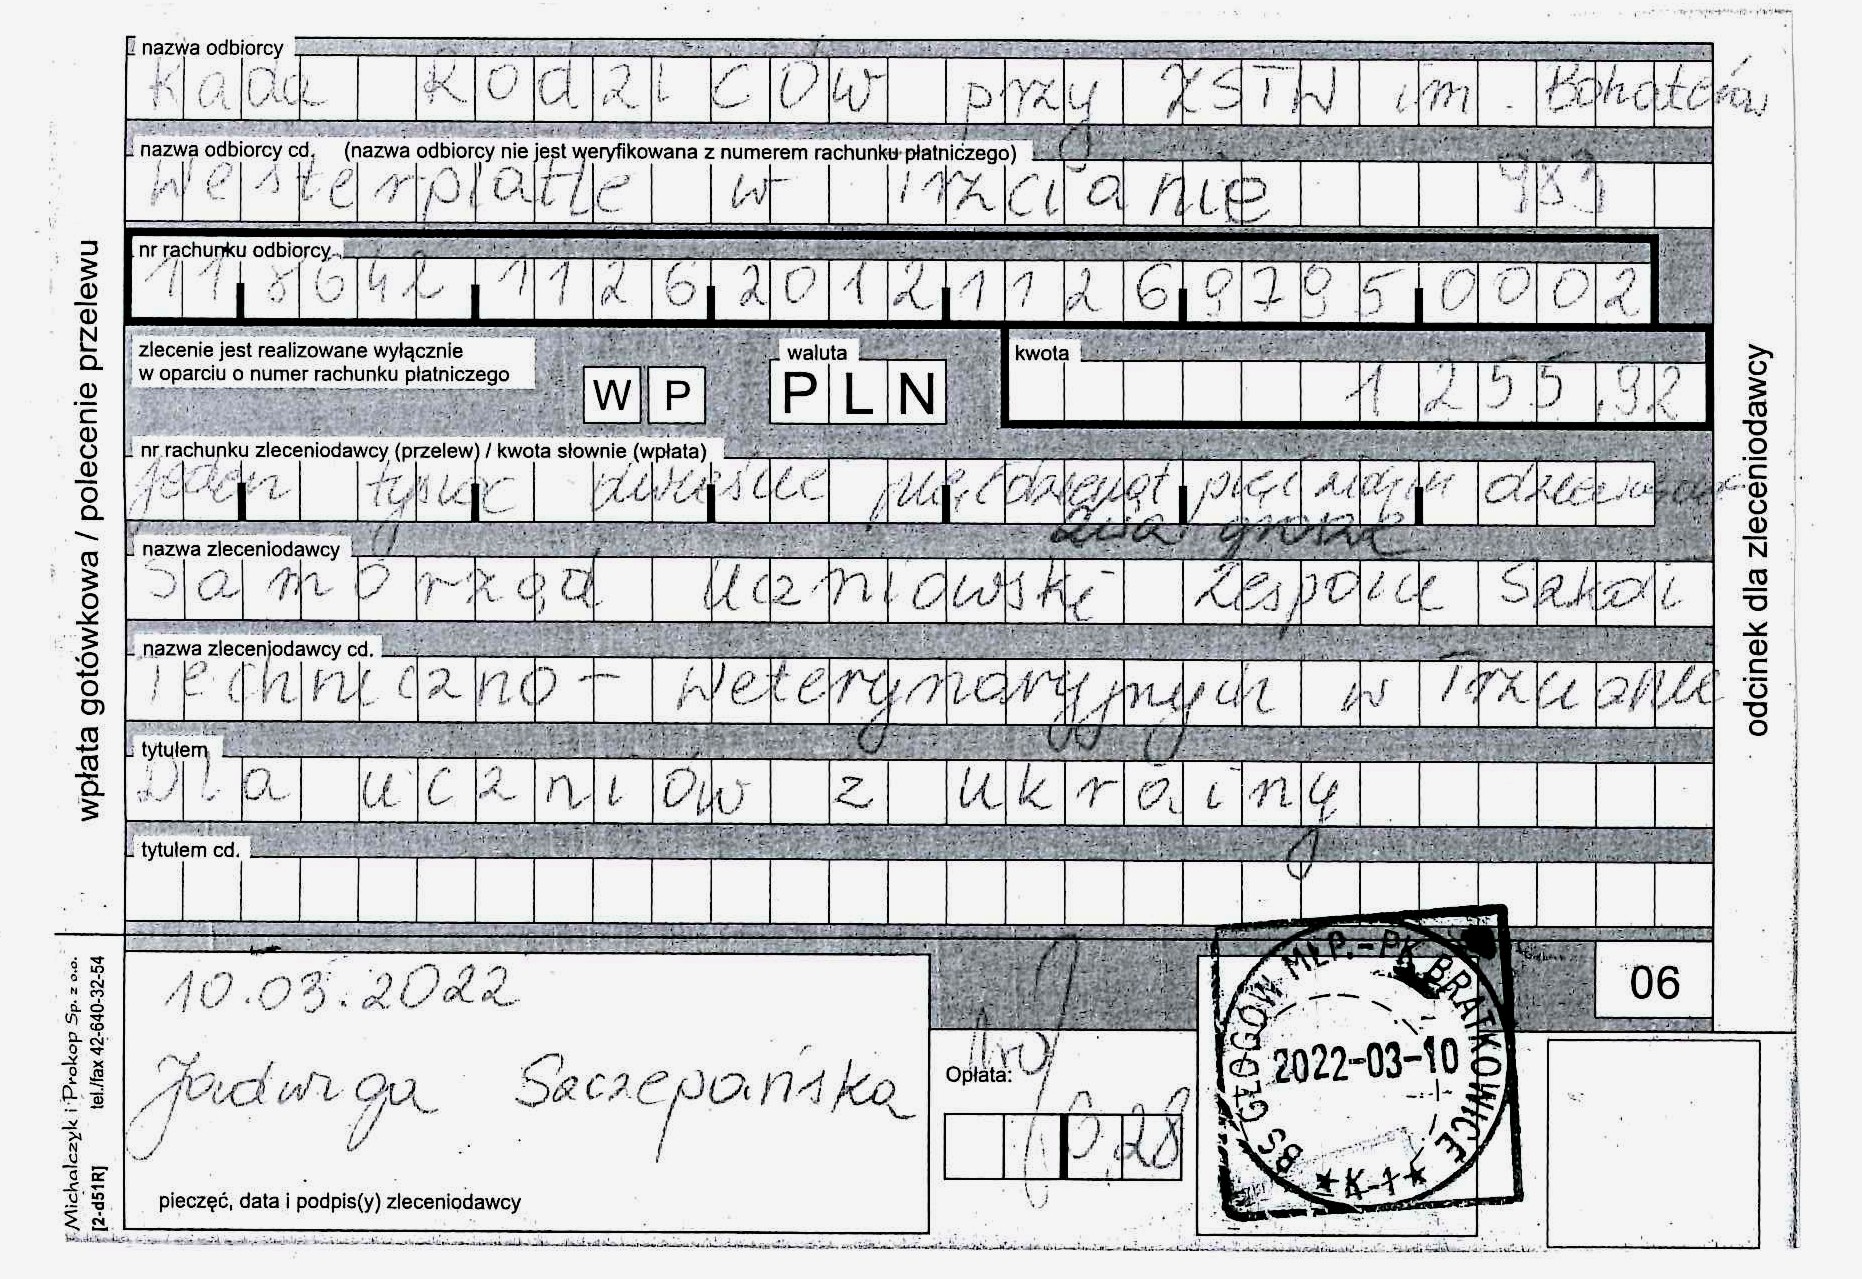 nazwa odbiorcy
Rada Rodziców przy ZSTW im. Bohaterów
nazwa odbiorcy cd. (nazwa odbiorcy nie jest weryfikowana z numerem rachunku płatniczego)
Westerplatte w Trzcianie 983
nr rachunku odbiorcy
11 8642 1126 2012 1126 9795 0002
zlecenie jest realizowane wyłącznie
w oparciu o numer rachunku płatniczego
W P
waluta
PLN
kwota
1255,92
nr rachunku zleceniodawcy (przelew) / kwota słownie (wpłata)
jeden tysiąc dwieście pięćdziesiąt pięć złotych dziewięćdziesiąt
dwa grosze
nazwa zleceniodawcy
Samorząd Uczniowski Zespołu Szkół
nazwa zleceniodawcy cd.
Techniczno - Weterynaryjnych w Trzcianie
tytułem
Dla uczniów z Ukrainy
tytułem cd.
06
10.03.2022
Jadwiga Szczepańska
pieczęć, data i podpis(y) zleceniodawcy
Opłata:
0,28
BS GŁOGÓW MŁP.-PK BRATKOWICE
2022-03-10
★K-1★
wpłata gotówkowa / polecenie przelewu
odcinek dla zleceniodawcy
Michalczyk i Prokop Sp. z o.o.
tel./fax 42-640-32-54
[2-d51R]